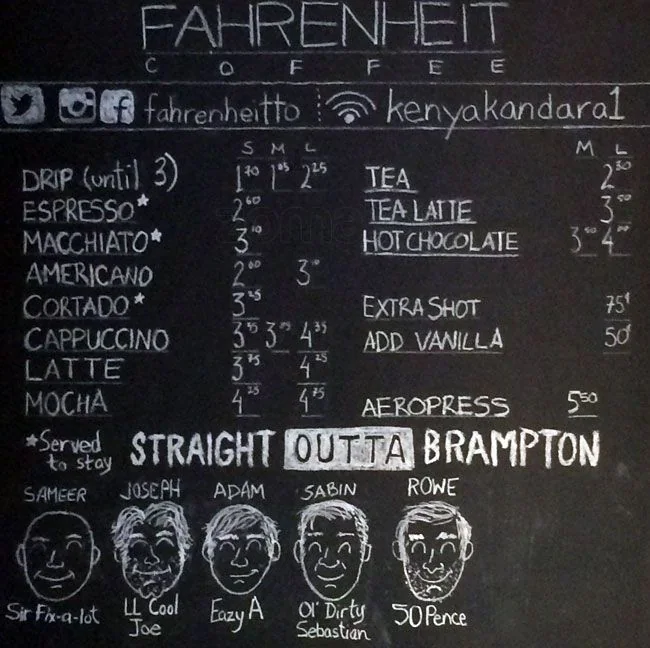 FAHRENHEIT
COFFEE
fahrenheitto kenyakandara1
S M L
DRIP (until 3) 1.70 1.95 2.25
ESPRESSO* 2.60
MACCHIATO* 3.10
AMERICANO 2.60
CORTADO* 3.25
CAPPUCCINO 4.35
LATTE 3.75 4.25
MOCHA 4.25 4.75
M L
TEA 2.30
TEA LATTE 3.50
HOT CHOCOLATE 3.50 4.00
EXTRA SHOT 75¢
ADD VANILLA 50¢
AEROPRESS 5.50
*Served
to stay
STRAIGHT OUTTA BRAMPTON
SAMEER JOSEPH ADAM SABIN ROWE
Sir Fix-a-lot LL Cool Joe Eazy A Ol' Dirty Sebastian 50 Pence